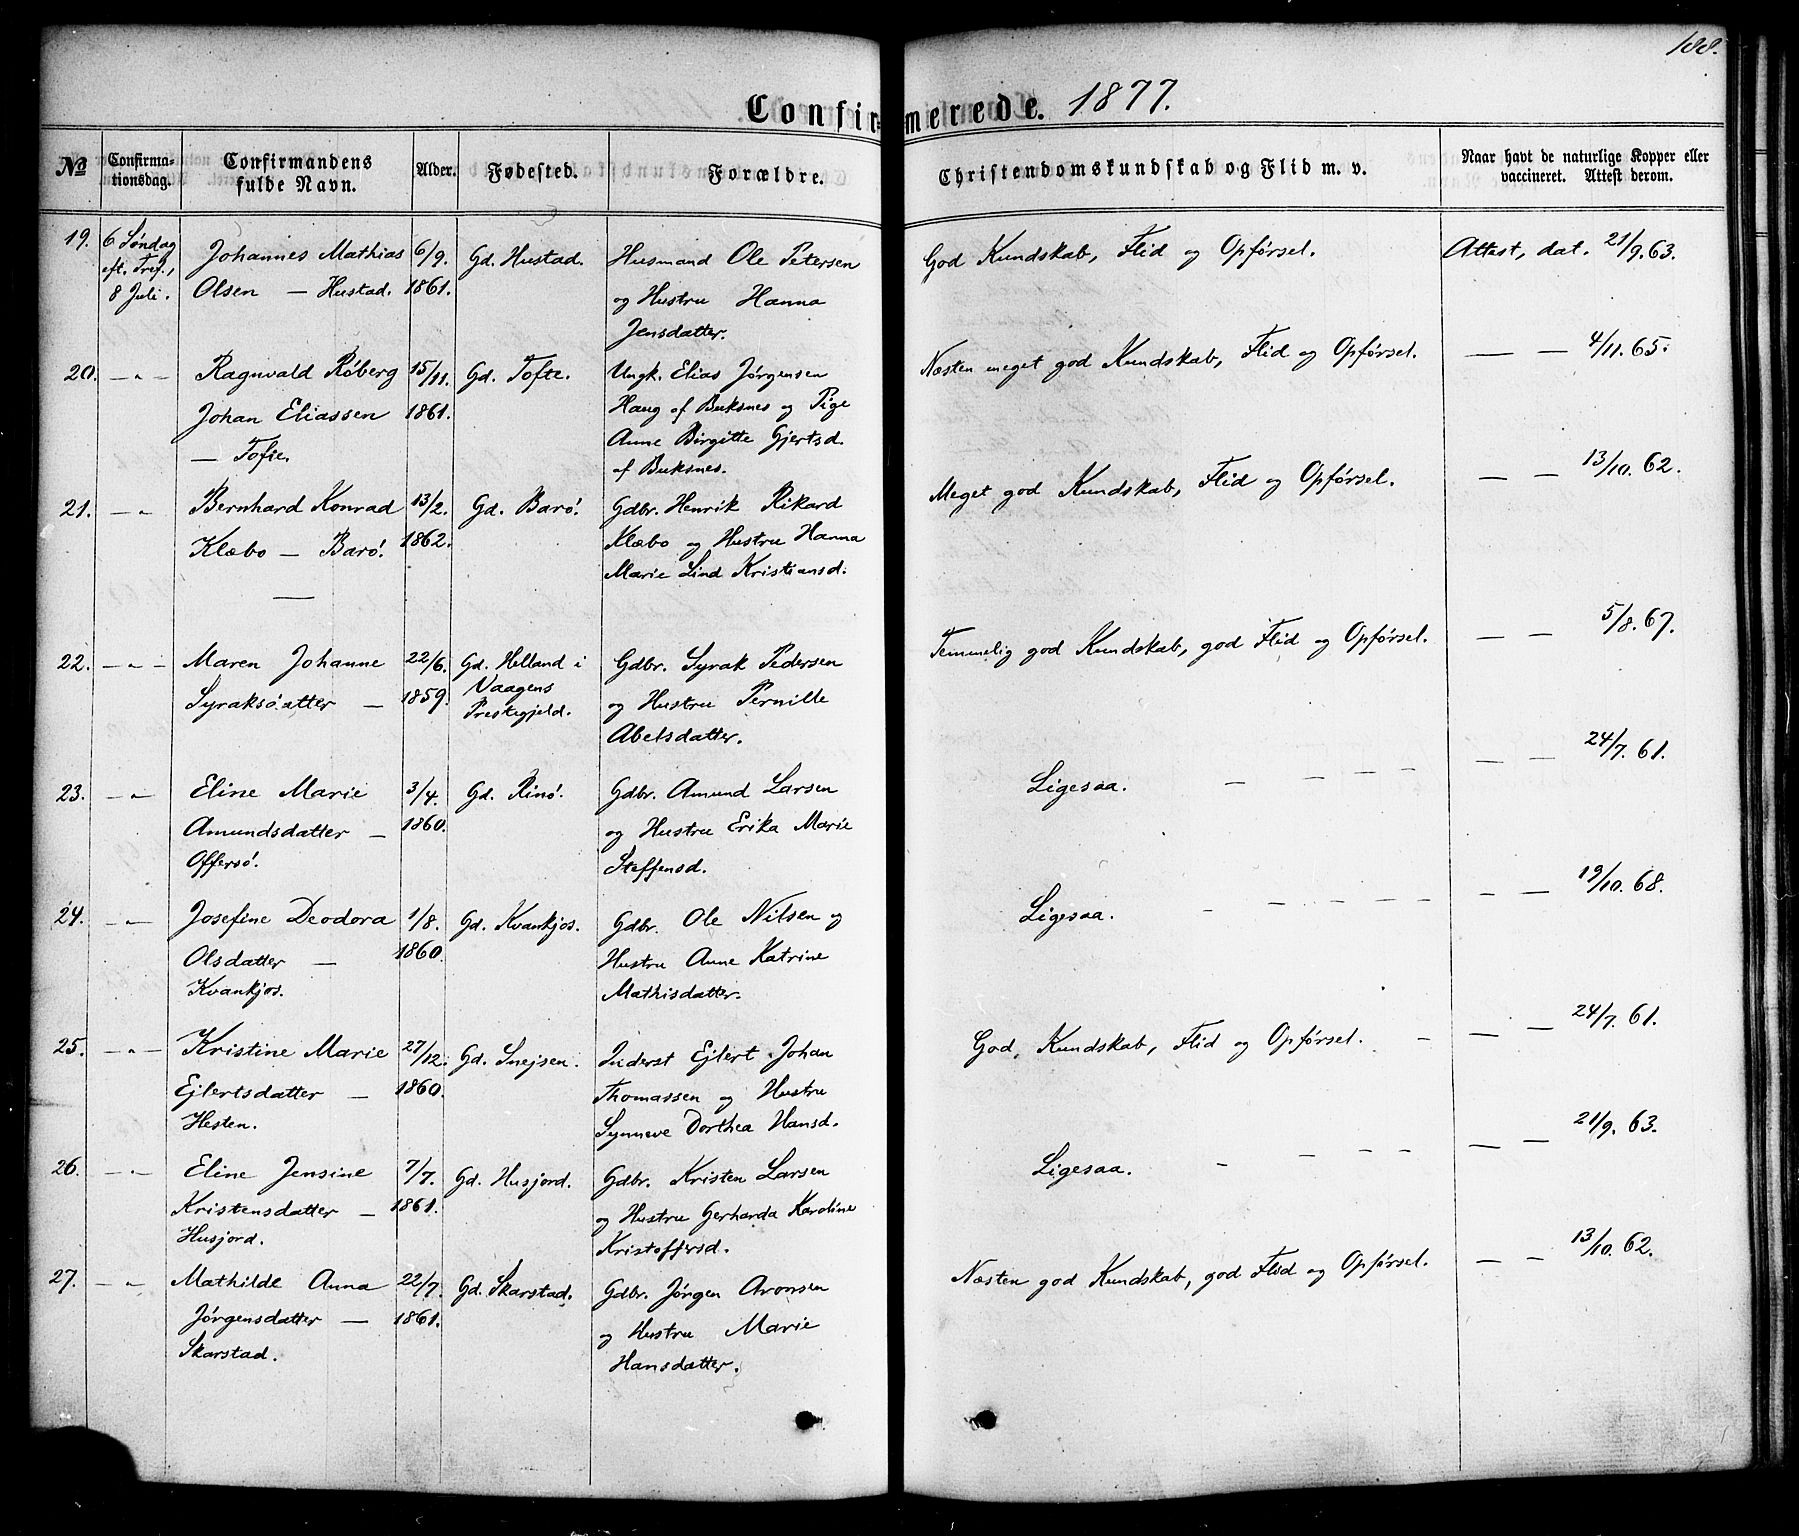 188.
Confirmerede. 1877.
№ Confirma-tionsdag. Confirmandens fulde Navn. Alder. Fødested. Forældre. Christendomskundskab og Flid m. v. Naar havt de naturlige Kopper eller vaccineret. Attest derom.
19. 6 Søndag Johannes Mathias 6/9. Gd. Hustad. Husmand Ole Petersen God Kundskab, Flid og Opførsel. Attest, dat. 21/9. 63.
eft. Tref., Olsen — Hustad. 1861. og Hustru Hanna
8 Juli. Jensdatter.
20. — " — Ragnvald Røberg 15/11. Gd. Tofte. Ungk. Elias Jørgensen Næsten meget god Kundskab, Flid og Opførsel. — — 4/11. 65.
Johan Eliassen 1861. Haug af Buksnes og Pige
— Tofte. Anne Birgitte Gjertsd.
af Buksnes.
21. — " Bernhard Konrad 13/2. Gd. Barø. Gdbr. Henrik Rikard Meget god Kundskab, Flid og Opførsel. — — 13/10. 62.
Klæbo — Barø. 1862. Klæbo og Hustru Hanna
— Marie Lind Kristiansd.
22. — " — Maren Johanne 22/6. Gd. Helland i Gdbr. Syrak Pedersen Temmelig god Kundskab, god Flid og Opførsel. — — 5/8. 67.
Syraksdatter — 1859. Vaagens og Hustru Pernille
Prestegjeld. Abelsdatter.
23. — " — Eline Marie 3/4. Gd. Rinø. Gdbr. Amund Larsen Ligesaa. — — — — — — 24/7. 61.
Amundsdatter — 1860. og Hustru Erika Marie
Offersø. Steffensd.
24. — " — Josefine Deodora 1/8. Gd. Kvankjos. Gdbr. Ole Nilsen og Ligesaa. — — — — — — — 19/10. 68.
Olsdatter — 1860. Hustru Anne Katrine
Kvankjos. Mathisdatter.
25. — " — Kristine Marie 27/12. Gd. Snejsen. Inderst Ejlert Johan God, Kundskab, Flid og Opførsel. — — — 24/7. 61.
Ejlertsdatter — 1860. Thomassen og Hustru
Hesten. Synneve Dorthea Hansd.
26. — " — Eline Jensine 7/7. Gd. Husjord. Gdbr. Kristen Larsen Ligesaa. — — — — — — 21/9. 63.
Kristensdatter — 1861. og Hustru Gerharda Karoline
Husjord. Kristoffersd.
27. — " Mathilde Anna 22/7. Gd. Skarstad. Gdbr. Jørgen Aronsen Næsten god Kundskab, god Flid og Opførsel. — — 13/10. 62.
Jørgensdatter — 1861. og Hustru Marie
Skarstad. Hansdatter.